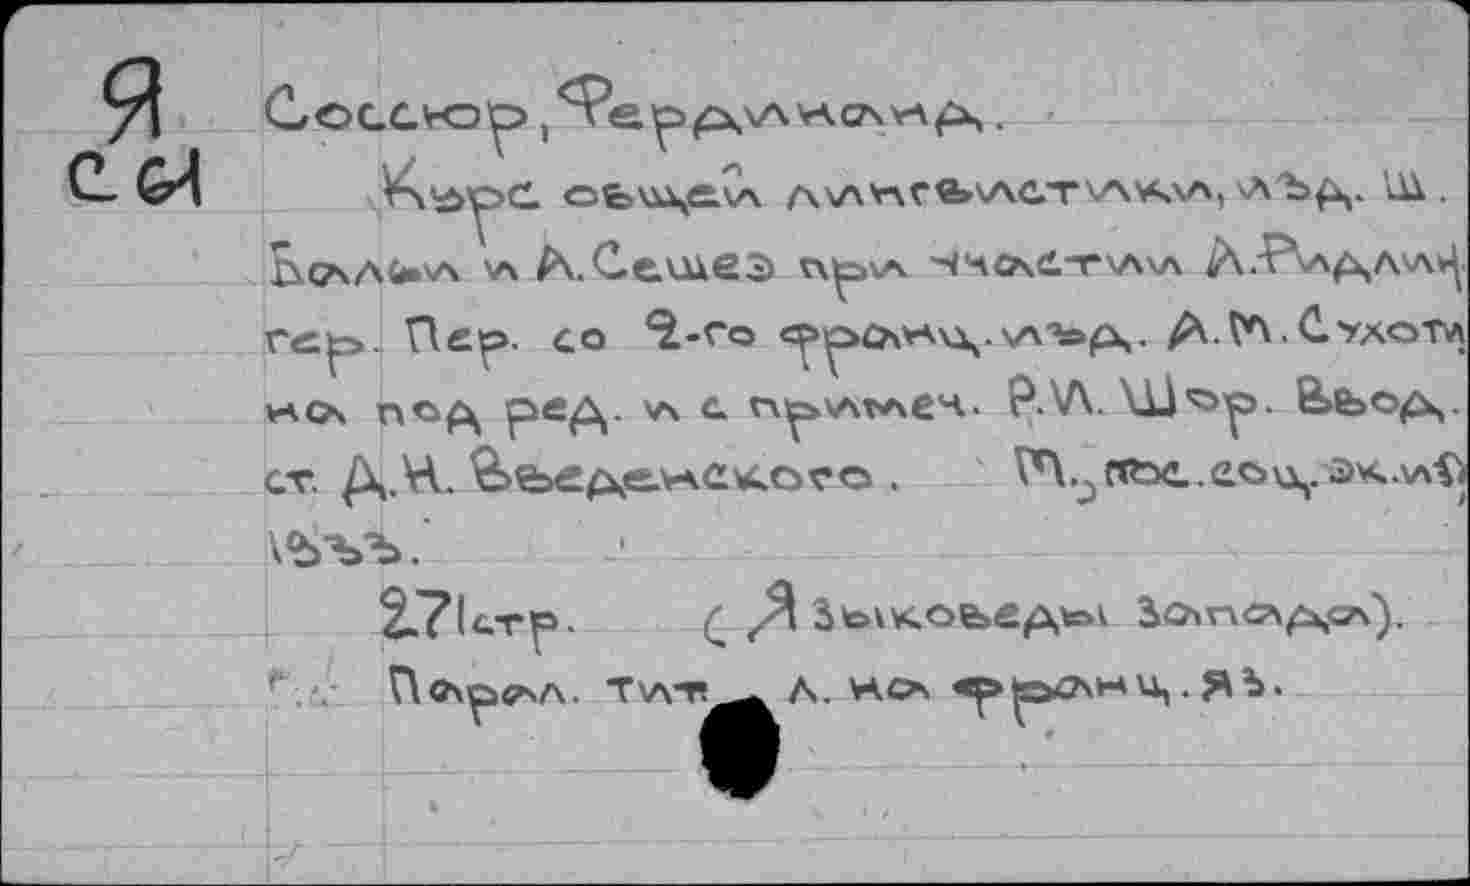 Я
С 61
Соссюр, Фердинанд.
Курс общей лингвистики, изд. Ш.
Балли и А. Сешеэ при участии А. Ридлин
гер. Пер. со 2-го франц. изд. А.М. Сухоти
на под ред. и с примеч. Р.И. Шор. Ввод.
ст. Д.Н. Введенского. М., гос. соц. эк. изд
1933.
271 стр. (Языковеды Запада).
Парал. тит. л. на франц. яз.